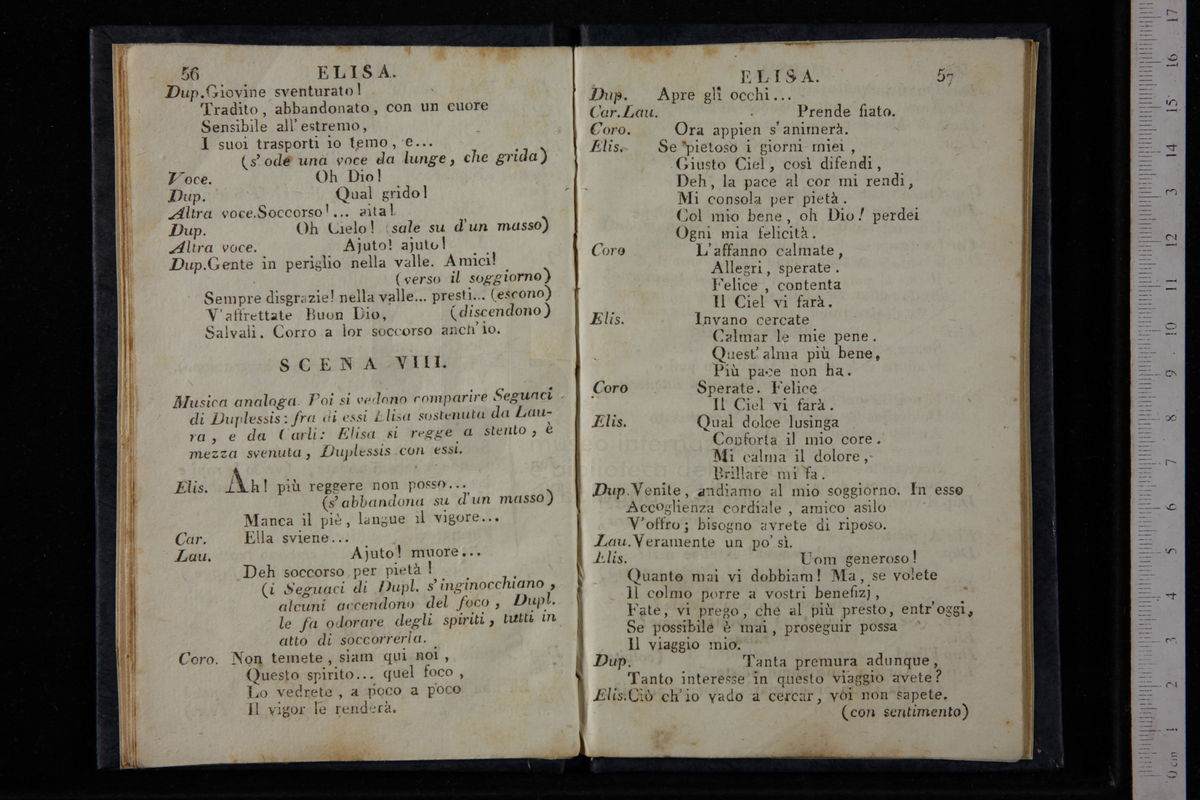 56 ELISA.
Dup. Giovine sventurato!
Tradito, abbandonato, con un cuore
Sensibile all' estremo,
I suoi trasporti io temo, e...
(s' ode una voce da lunge, che grida)
Voce. Oh Dio!
Dup. Qual grido!
Altra voce. Soccorso!... aita!
Dup. Oh Cielo! (sale su d'un masso)
Altra voce. Ajuto! ajuto!
Dup. Gente in periglio nella valle. Amici!
(verso il soggiorno)
Sempre disgrazie! nella valle... presti... (escono)
V' affrettate Buon Dio, (discendono)
Salvali. Corro a lor soccorso anch' io.
SCENA VIII.
Musica analoga. Poi si vedono comparire Seguaci
di Duplessis: fra di essi Elisa sostenuta da Lau-
ra, e da Carli: Elisa si regge a stento, è
mezza svenuta, Duplessis con essi.
Elis. Ah! più reggere non posso...
(s' abbandona su d'un masso)
Manca il piè, langue il vigore...
Car. Ella sviene...
Lau. Ajuto! muore...
Deh soccorso per pietà!
(i Seguaci di Dupl. s' inginocchiano,
alcuni accendono del foco, Dupl.
le fa odorare degli spiriti, tutti in
atto di soccorrerla.
Coro. Non temete, siam qui noi,
Questo spirito... quel foco,
Lo vedrete, a poco a poco
Il vigor le renderà.
ELISA. 57
Dup. Apre gli occhi...
Car. Lau. Prende fiato.
Coro. Ora appien s' animerà.
Elis. Se pietoso i giorni miei,
Giusto Ciel, così difendi,
Deh, la pace al cor mi rendi,
Mi consola per pietà.
Col mio bene, oh Dio! perdei
Ogni mia felicità.
Coro L' affanno calmate,
Allegri, sperate.
Felice, contenta
Il Ciel vi farà.
Elis. Invano cercate
Calmar le mie pene.
Quest' alma più bene,
Più pace non ha.
Coro Sperate. Felice
Il Ciel vi farà.
Elis. Qual dolce lusinga
Conforta il mio core.
Mi calma il dolore,
Brillare mi fa.
Dup. Venite, andiamo al mio soggiorno. In esso
Accoglienza cordiale, amico asilo
V' offro; bisogno avrete di riposo.
Lau. Veramente un po' sì.
Elis. Uom generoso!
Quanto mai vi dobbiam! Ma, se volete
Il colmo porre a vostri benefizj,
Fate, vi prego, che al più presto, entr' oggi,
Se possibile è mai, proseguir possa
Il viaggio mio.
Dup. Tanta premura adunque,
Tanto interesse in questo viaggio avete?
Elis. Ciò ch' io vado a cercar, voi non sapete.
(con sentimento)
0 cm 1 2 3 4 5 6 7 8 9 10 11 12 13 14 15 16 17